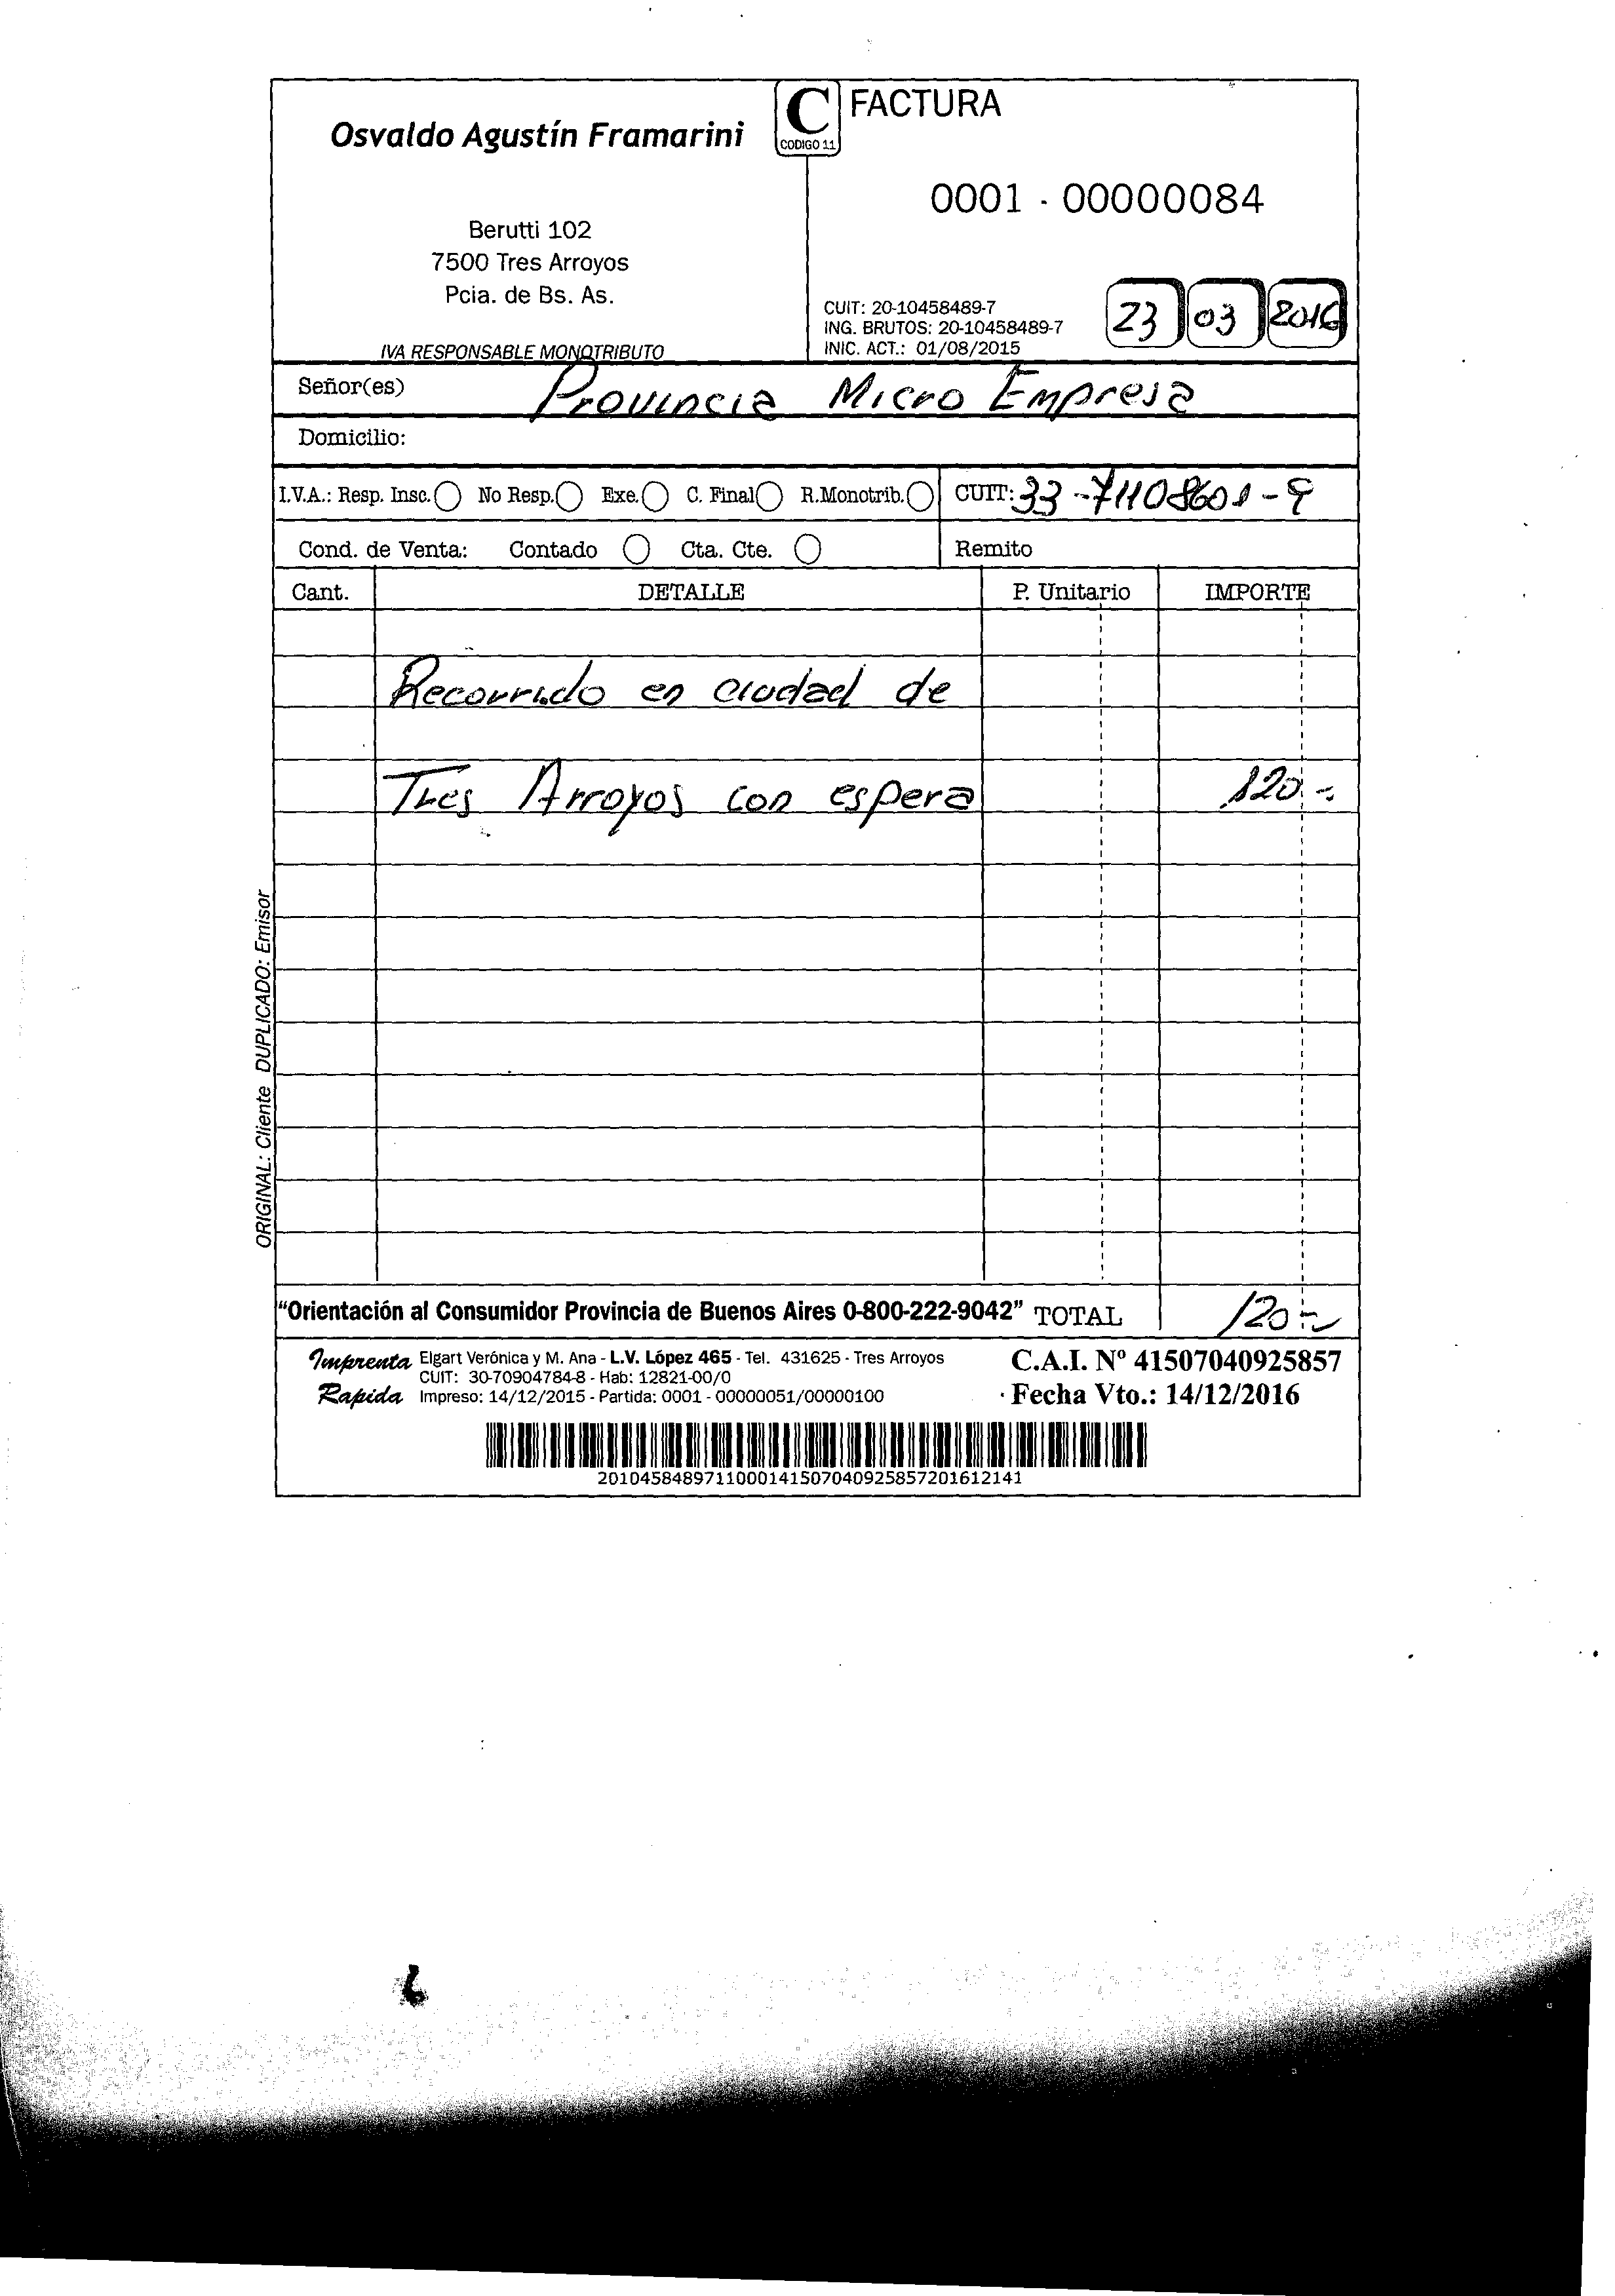 Osvaldo Agustín Framarini
C
CODIGO 11
FACTURA
0001 - 00000084
Berutti 102
7500 Tres Arroyos
Pcia. de Bs. As.
IVA RESPONSABLE MONOTRIBUTO
CUIT: 20-10458489-7
ING. BRUTOS: 20-10458489-7
INIC. ACT.: 01/08/2015
23 03 2016
Señor(es) Provincia Micro Empresa
Domicilio:
I.V.A.: Resp. Insc. No Resp. Exe. C. Final R.Monotrib. CUIT: 33-71108601-9
Cond. de Venta: Contado Cta. Cte. Remito
Cant. DETALLE P. Unitario IMPORTE
Recorrido en ciudad de
Tres Arroyos con espera 120.-
ORIGINAL: Cliente DUPLICADO: Emisor
"Orientación al Consumidor Provincia de Buenos Aires 0-800-222-9042" TOTAL 120.-
Imprenta Rapida
Elgart Verónica y M. Ana - L.V. López 465 - Tel. 431625 - Tres Arroyos
CUIT: 30-70904784-8 - Hab: 12821-00/0
Impreso: 14/12/2015 - Partida: 0001 - 00000051/00000100
C.A.I. Nº 41507040925857
Fecha Vto.: 14/12/2016
2010458489711000141507040925857201612141